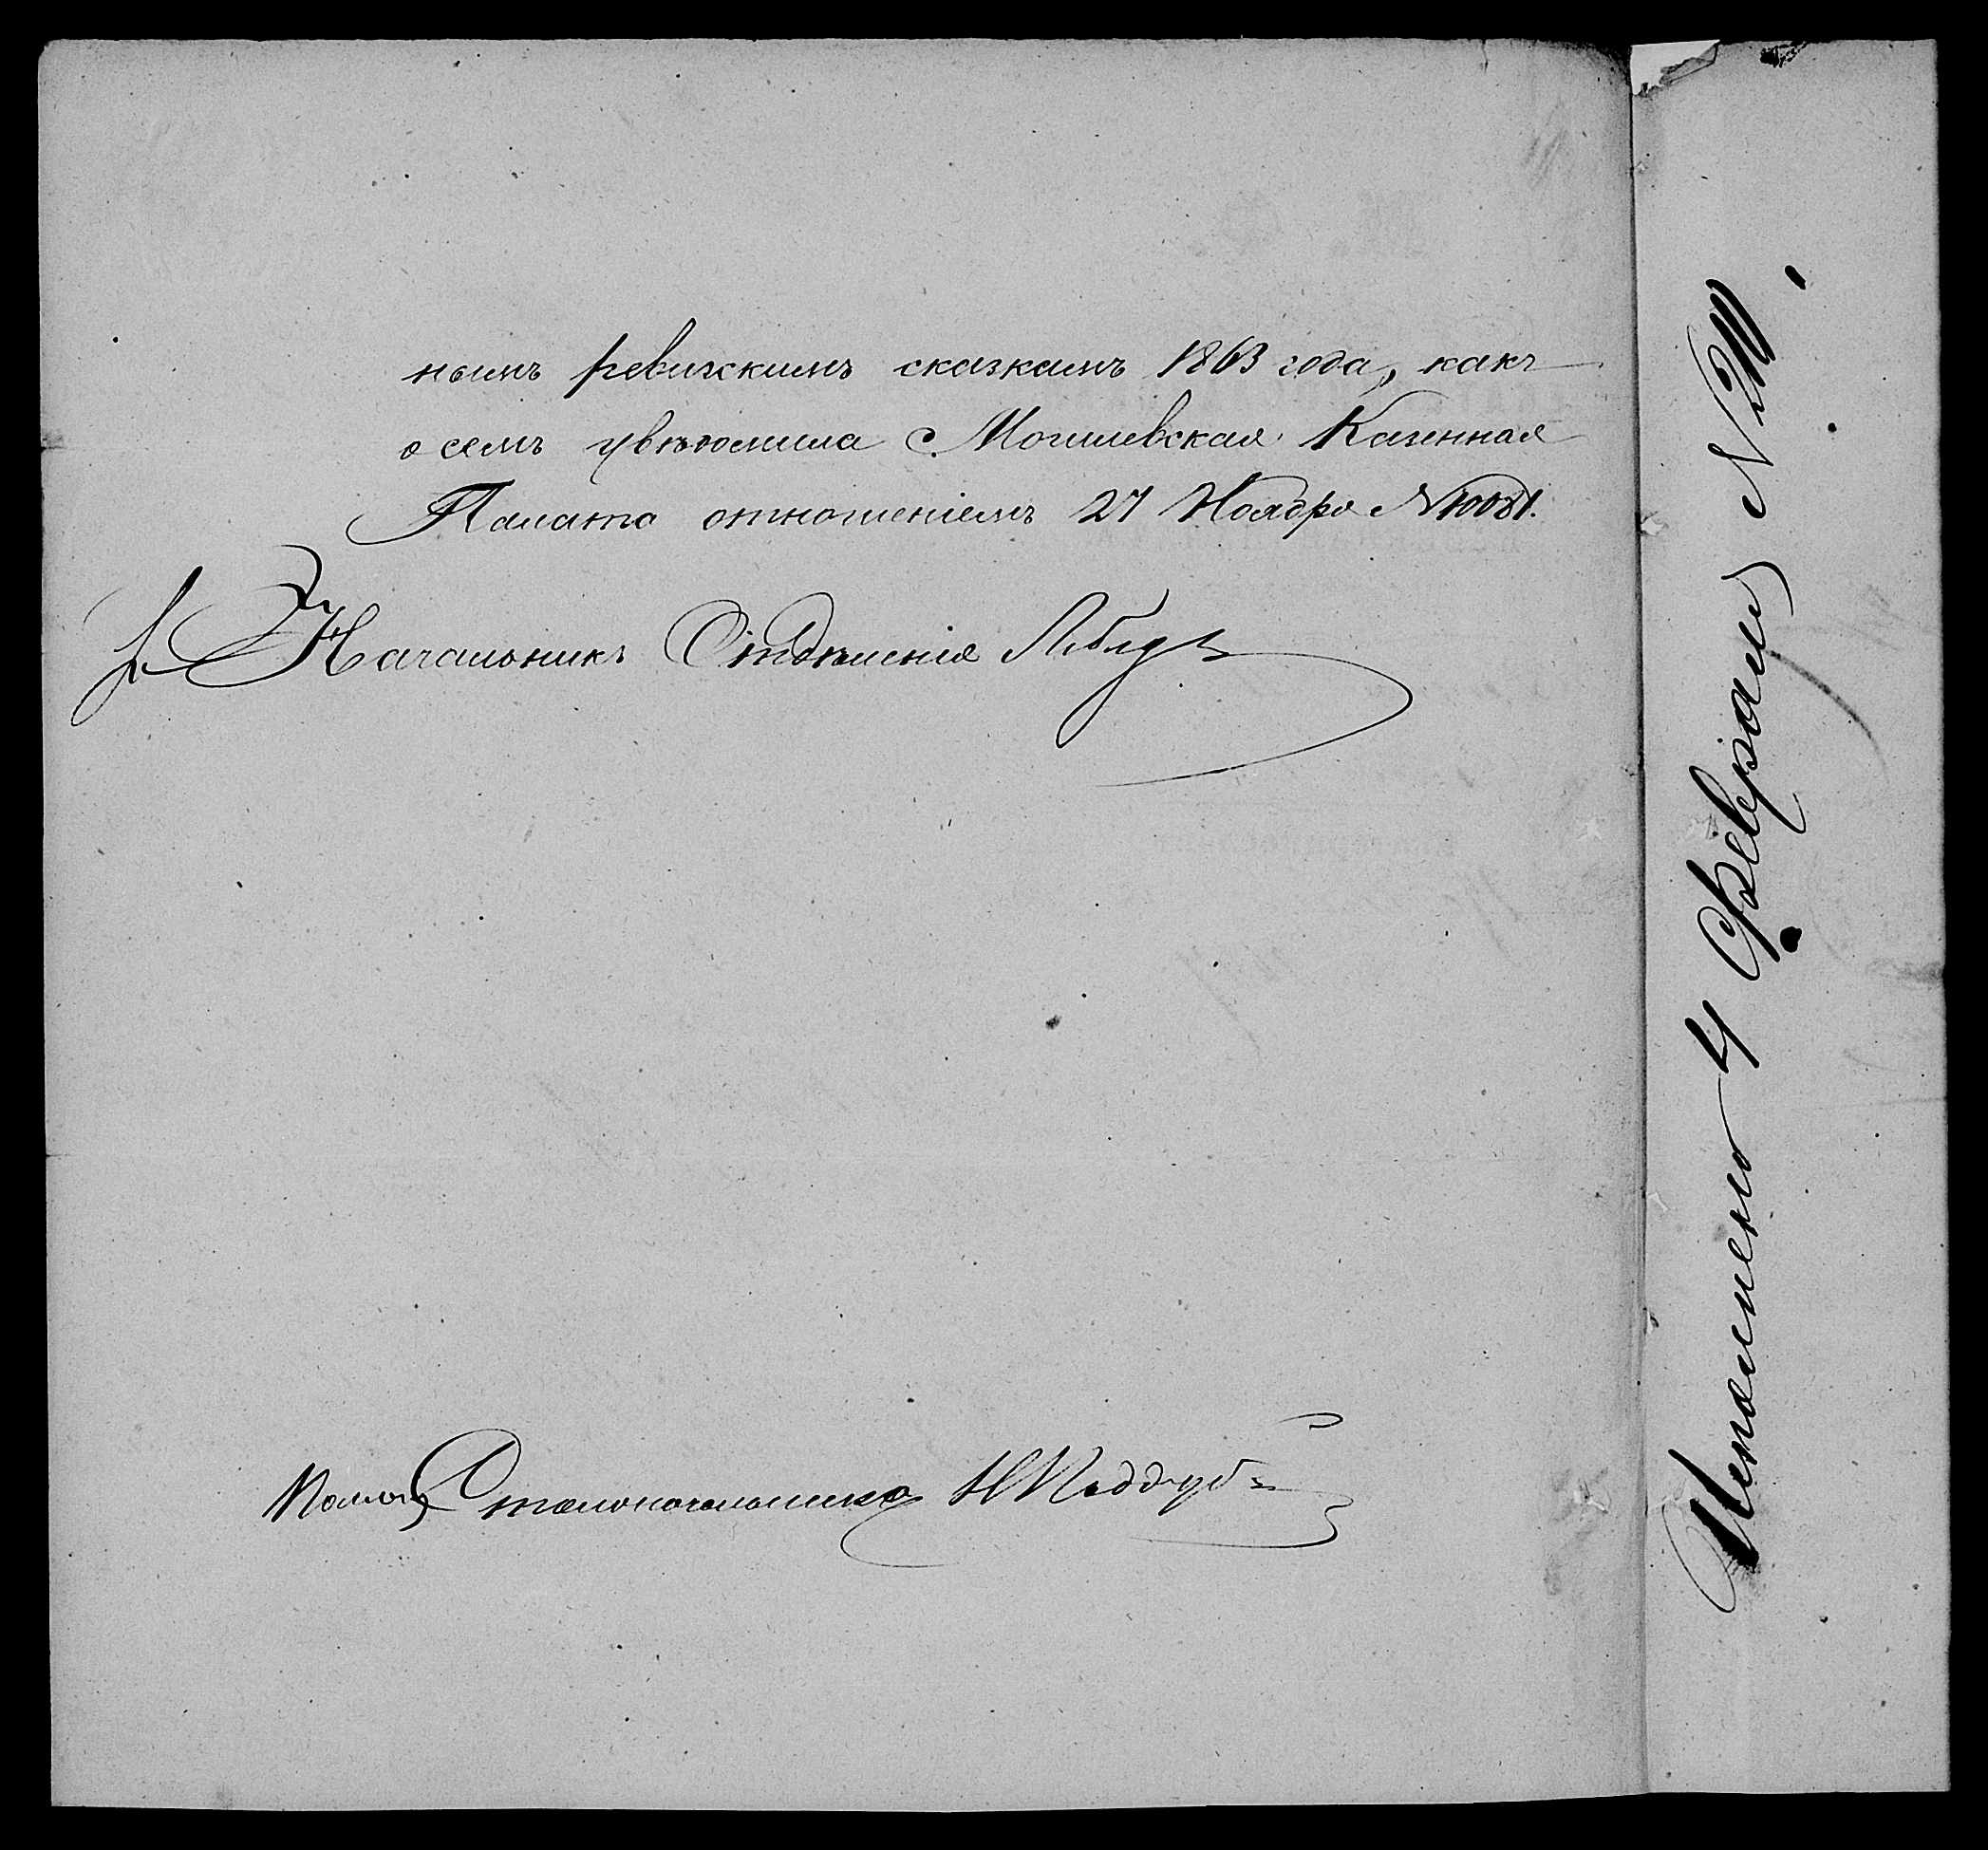 нымъ ревизскимъ сказкамъ 1863 года, какъ
о семъ увѣдомила Могилевская Казенная
Палата отношеніемъ 27 Ноября № 10081.
Начальникъ Отдѣленія
Помощ Столоначальника Н Поддуб
Исполнено 4 Февраля №